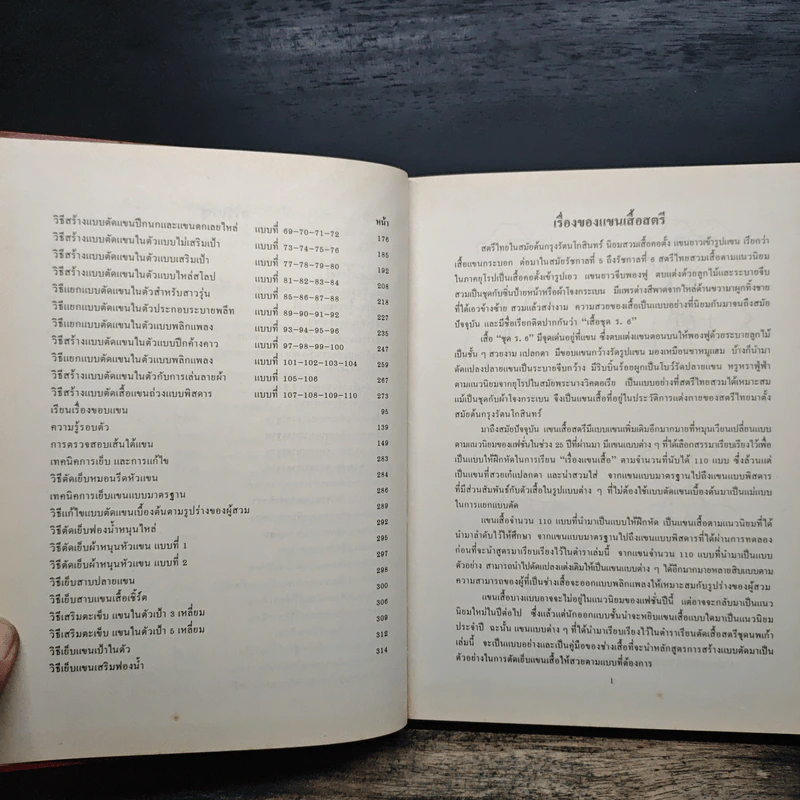 หน้า
วิธีสร้างแบบตัดแขนปีกนกและแขนตกเลยไหล่ แบบที่ 69-70-71-72 176
วิธีสร้างแบบตัดแขนในตัวแบบไม่เสริมเป้า แบบที่ 73-74-75-76 185
วิธีสร้างแบบตัดแขนในตัวแบบเสริมเป้า แบบที่ 77-78-79-80 192
วิธีสร้างแบบตัดแขนในตัวแบบไหล่สโลป แบบที่ 81-82-83-84 208
วิธีแยกแบบตัดแขนในตัวสำหรับสาวรุ่น แบบที่ 85-86-87-88 218
วิธีแยกแบบตัดแขนในตัวประกอบระบายพลีท แบบที่ 89-90-91-92 227
วิธีแยกแบบตัดแขนในตัวแบบพลิกแพลง แบบที่ 93-94-95-96 235
วิธีสร้างแบบตัดแขนในตัวแบบปีกค้างคาว แบบที่ 97-98-99-100 247
วิธีแยกแบบตัดแขนในตัวแบบพลิกแพลง แบบที่ 101-102-103-104 259
วิธีสร้างแบบตัดแขนในตัวกับการเล่นลายผ้า แบบที่ 105-106 267
วิธีสร้างแบบตัดเสื้อแขนถ่วงแบบพิสดาร แบบที่ 107-108-109-110 273
เรียนเรื่องขอบแขน 95
ความรู้รอบตัว 139
การตรวจสอบเส้นใต้แขน 149
เทคนิคการเย็บ และการแก้ไข 283
วิธีตัดเย็บหมอนรีดหัวแขน 284
เทคนิคการเย็บแขนแบบมาตรฐาน 286
วิธีแก้ไขแบบตัดแขนเบื้องต้นตามรูปร่างของผู้สวม 289
วิธีตัดเย็บฟองน้ำหนุนไหล่ 292
วิธีตัดเย็บผ้าหนุนหัวแขน แบบที่ 1 295
วิธีตัดเย็บผ้าหนุนหัวแขน แบบที่ 2 297
วิธีเย็บสาบปลายแขน 298
วิธีเย็บสาบแขนเสื้อเชิ้ต 300
วิธีเสริมตะเข็บ แขนในตัวเป้า 3 เหลี่ยม 306
วิธีเสริมตะเข็บ แขนในตัวเป้า 5 เหลี่ยม 309
วิธีเย็บแขนเป้าในตัว 312
วิธีเย็บแขนเสริมฟองน้ำ 314
เรื่องของแขนเสื้อสตรี
สตรีไทยในสมัยต้นกรุงรัตนโกสินทร์ นิยมสวมเสื้อคอตั้ง แขนยาวเข้ารูปแขน เรียกว่า
เสื้อแขนกระบอก ต่อมาในสมัยรัชกาลที่ 5 ถึงรัชกาลที่ 6 สตรีไทยสวมเสื้อตามแนวนิยม
ในภาคยุโรปเป็นเสื้อคอตั้งเข้ารูปเอว แขนยาวจีบพองฟู ตบแต่งด้วยลูกไม้และระบายจีบ
สวมเป็นชุดกับซิ่นป้ายหน้าหรือผ้าโจงกระเบน มีแพรต่างสีพาดจากไหล่ด้านขวามาผูกทิ้งชาย
ที่ใต้เอวข้างซ้าย สวมแล้วสง่างาม ความสวยของเสื้อเป็นแบบอย่างที่นิยมกันมาจนถึงสมัย
ปัจจุบัน และมีชื่อเรียกติดปากกันว่า “เสื้อชุด ร. ๕”
เสื้อ “ชุด ร. ๕” มีจุดเด่นอยู่ที่แขน ซึ่งตบแต่งแขนตอนบนให้พองฟูด้วยระบายลูกไม้
เป็นชั้น ๆ สวยงาม แปลกตา มีขอบแขนกว้างรัดรูปแขน มองเหมือนขาหมูแฮม บ้างก็นำมา
ดัดแปลงปลายแขนเป็นระบายจีบกว้าง มีริบบิ้นร้อยผูกเป็นโบว์รัดปลายแขน หรูหราฟู่ฟ่า
ตามแนวนิยมจากยุโรปในสมัยพระนางวิคตอเรีย เป็นแบบอย่างที่สตรีไทยสวมได้เหมาะสม
แม้เป็นชุดกับผ้าโจงกระเบน จึงเป็นแขนเสื้อที่อยู่ในประวัติการแต่งกายของสตรีไทยมาตั้ง
สมัยต้นกรุงรัตนโกสินทร์
มาถึงสมัยปัจจุบัน แขนเสื้อสตรีมีแบบแขนเพิ่มเติมอีกมากมายที่หมุนเวียนเปลี่ยนแบบ
ตามแนวนิยมของแฟชั่นในช่วง 25 ปีที่ผ่านมา มีแขนแบบต่าง ๆ ที่ได้เลือกสรรมาเรียบเรียงไว้เพื่อ
เป็นแบบให้ฝึกหัดในการเรียน “เรื่องแขนเสื้อ” ตามจำนวนที่นับได้ 110 แบบ ซึ่งล้วนแต่
เป็นแขนที่สวยเก๋แปลกตา และน่าสวมใส่ จากแขนแบบมาตรฐานไปถึงแขนแบบพิสดาร
ที่มีส่วนสัมพันธ์กับตัวเสื้อในรูปแบบต่าง ๆ ที่ไม่ต้องใช้แบบตัดแขนเบื้องต้นมาเป็นแม่แบบ
ในการแยกแบบตัด
แขนเสื้อจำนวน 110 แบบที่นำมาเป็นแบบให้ฝึกหัด เป็นแขนเสื้อตามแนวนิยมที่ได้
นำมาลำดับไว้ให้ศึกษา จากแขนแบบมาตรฐานไปถึงแขนแบบพิสดารที่ได้ผ่านการทดลอง
ก่อนที่จะนำสูตรมาเรียบเรียงไว้ในตำราเล่มนี้ จากแขนจำนวน 110 แบบที่นำมาเป็นแบบ
ตัวอย่าง สามารถนำไปดัดแปลงแต่งเติมให้เป็นแขนแบบต่าง ๆ ได้อีกมากมายหลายสิบแบบตาม
ความสามารถของผู้ที่เป็นช่างเสื้อจะออกแบบพลิกแพลงให้เหมาะสมกับรูปร่างของผู้สวม
แขนเสื้อบางแบบอาจจะไม่อยู่ในแนวนิยมของแฟชั่นปีนี้ แต่อาจจะกลับมาเป็นแนว
นิยมใหม่ในปีต่อไป ซึ่งแล้วแต่นักออกแบบชั้นนำจะหยิบแขนเสื้อแบบใดมาเป็นแนวนิยม
ประจำปี ฉะนั้น แขนแบบต่าง ๆ ที่ได้นำมาเรียบเรียงไว้ในตำราเรียนตัดเสื้อสตรีชุดนพเก้า
เล่มนี้ จะเป็นแบบอย่างและเป็นคู่มือของช่างเสื้อที่จะนำหลักสูตรการสร้างแบบตัดมาเป็น
ตัวอย่างในการตัดเย็บแขนเสื้อให้สวยตามแบบที่ต้องการ
1